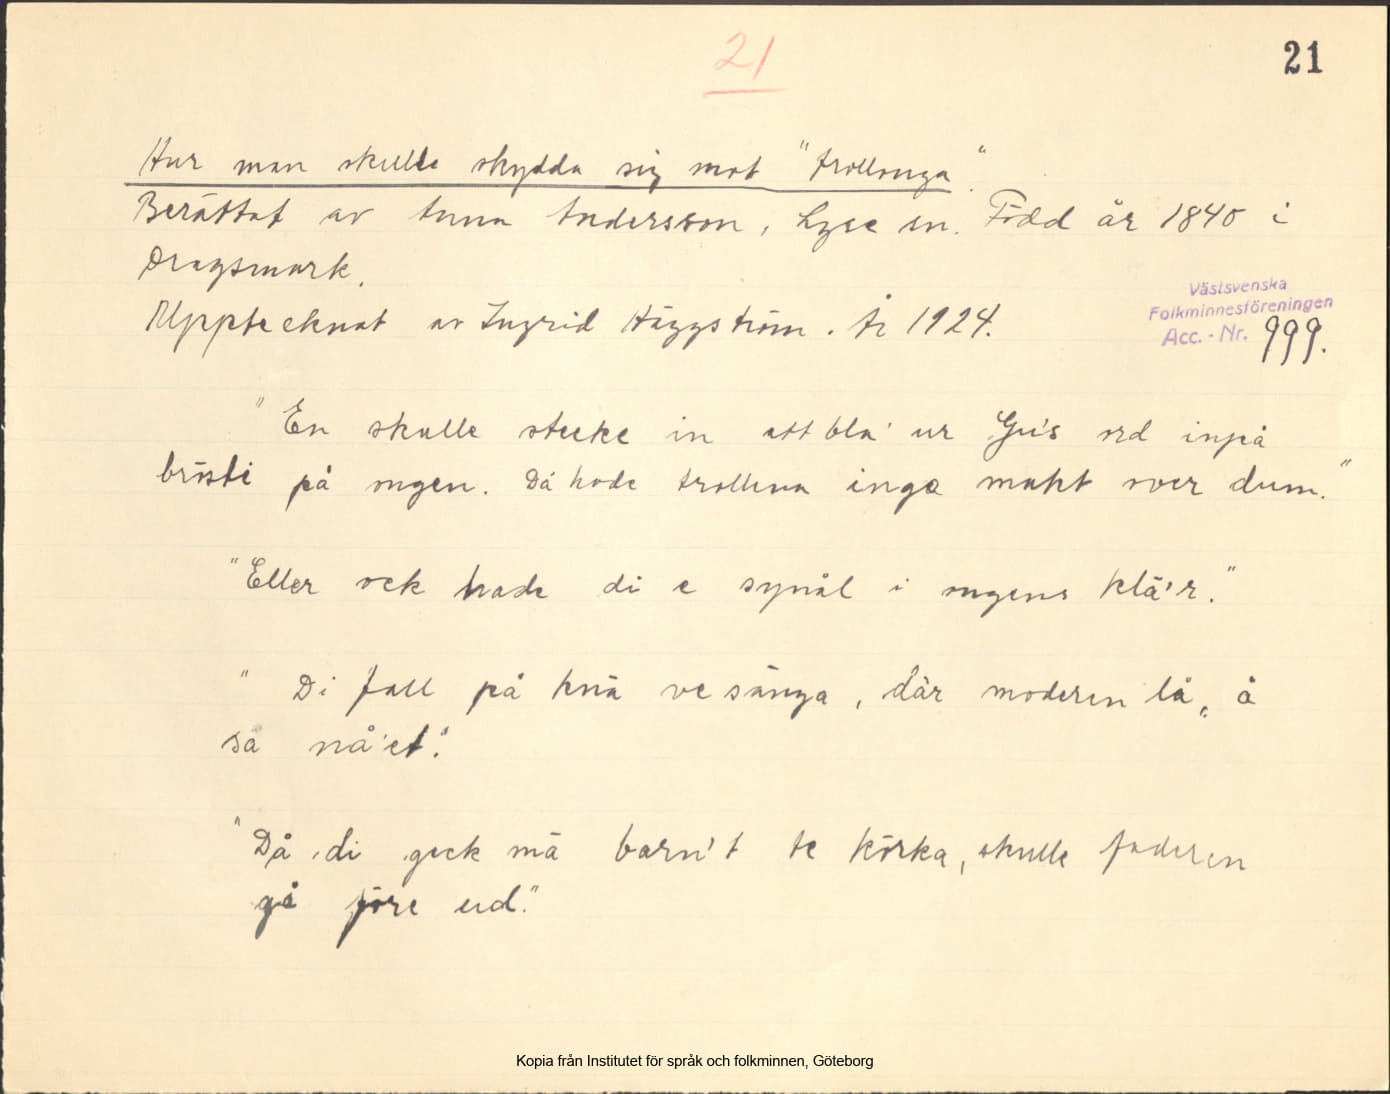 21
21
Hur man skulle skydda sig mot "trollonga".
Berättat av Anna Andersson, Lyse sn. Född år 1840 i
Dragsmark.
Upptecknat av Ingrid Häggström. År 1924.
Västsvenska
Folkminnesföreningen
Acc. - Nr. 999.
"En skulle stecke in ett bla' ur Gu's ord inpå
brösti på ongen. Då hade trollena inga makt over dum."
"Eller ock hade di e synål i ongens klä'r."
"Di fall på knä ve sänga, där moderen lå, å
sa nå'et."
"Då di geck mä barn't te körka, skulle faderen
gå före ud."
Kopia från Institutet för språk och folkminnen, Göteborg